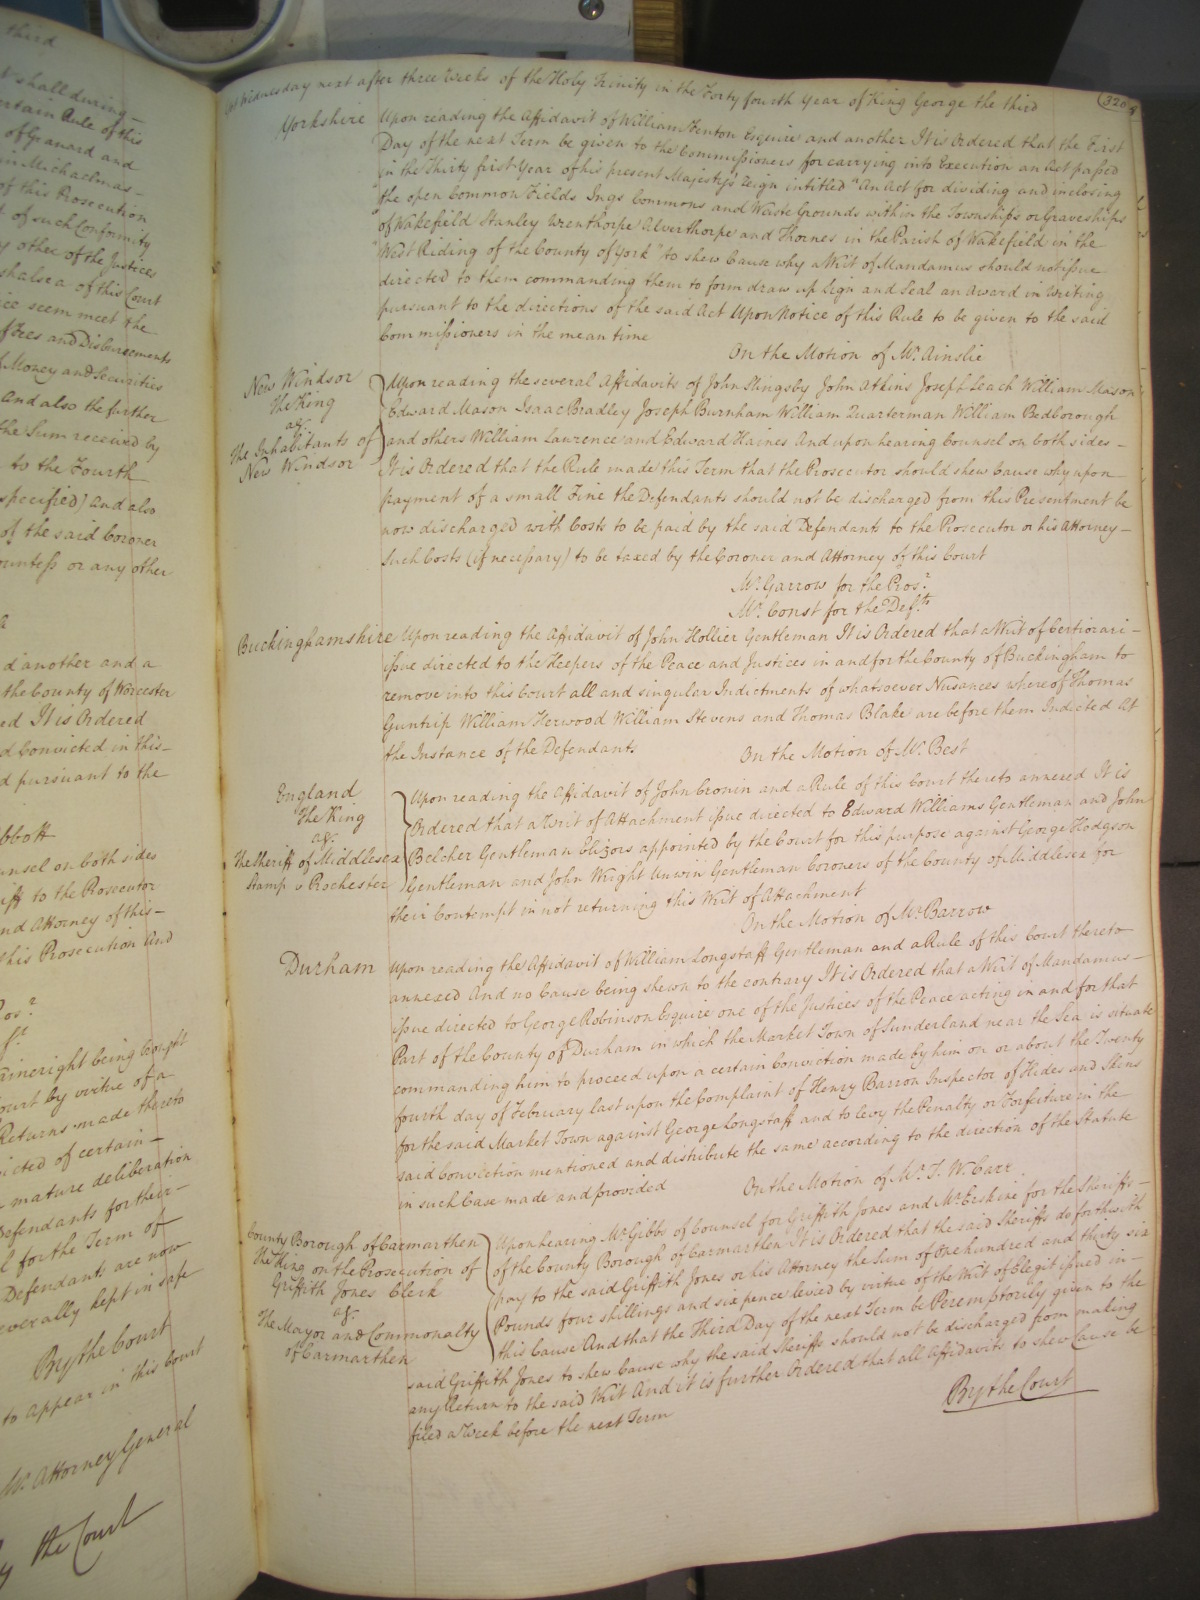 third
shall during
ertain Rule of this
of Granard and
in Michaelmas
of this Prosecution
of such Conformity
other of the Justices
shalsea of this Court
ice seem meet the
Fees and Disbursements
Money and Securities
And also the further
the Sum received by
to the Fourth
specified) And also
of the said Coroner
ountess or any other
d another and a
the County of Worcester
ed It is Ordered
d Convicted in this
d pursuant to the
bbott
unsel on both sides
iff to the Prosecutor
nd Attorney of this
this Prosecution And
Pos.r
ft
aineright being bought
ourt by virtue of a
Returns made thereto
icted of certain
mature deliberation
Defendants for their
for the Term of
Defendants are now
everally kept in safe
By the Court
to appear in this Court
Mr. Attorney General
the Court
Wednesday next after three Weeks of the Holy Trinity in the Forty fourth Year of King George the third
320
Yorkshire Upon reading the Affidavit of William Fenton Esquire and another It is Ordered that the First
Day of the next Term be given to the Commissioners for carrying into Execution an Act passed
in the Thirty first Year of his present Majesty's Reign intitled "An Act for dividing and inclosing
"the open Common Fields Ings Commons and Waste Grounds within the Townships or Graveships
of Wakefield Stanley Wrenthorpe Alverthorpe and Thornes in the Parish of Wakefield in the
"West Riding of the County of York" to shew Cause why a Writ of Mandamus should not issue
directed to them commanding them to form draw up sign and seal an Award in Writing
pursuant to the directions of the said Act Upon Notice of this Rule to be given to the said
Commissioners in the mean time
On the Motion of Mr. Ainslie
New Windsor
The King
agt.
the Inhabitants of
New Windsor
Upon reading the several Affidavits of John Slingsby John Atkins Joseph Leach William Mason
Edward Mason Isaac Bradley Joseph Burnham William Quarterman William Bedborough
and others William Lawrence and Edward Haines And upon hearing Counsel on both sides -
It is Ordered that the Rule made this Term that the Prosecutor should shew Cause why upon
payment of a small Fine the Defendants should not be discharged from this Presentment be
now discharged with Costs to be paid by the said Defendants to the Prosecutor or his Attorney -
Such Costs (if necessary) to be taxed by the Coroner and Attorney of this Court
Mr. Garrow for the Pros.r
Mr. Const for the Def.ts
Buckinghamshire Upon reading the Affidavit of John Hollier Gentleman It is Ordered that a Writ of Certiorari -
issue directed to the Keepers of the Peace and Justices in and for the County of Buckingham to
remove into this Court all and singular Indictments of whatsoever Nusances whereof Thomas
Guntrip William Herwood William Stevens and Thomas Blake are before them Indicted At
the Instance of the Defendants
On the Motion of Mr. Best
England
The King
agt.
the Sheriff of Middlesex
Stamp v Rochester
Upon reading the Affidavit of John Cronin and a Rule of this Court thereto annexed It is
Ordered that a Writ of Attachment issue directed to Edward Williams Gentleman and John
Belcher Gentleman Elizors appointed by the Court for this purpose against George Hodgson
Gentleman and John Wright Unwin Gentleman Coroners of the County of Middlesex for
their Contempt in not returning this Writ of Attachment
On the Motion of Mr. Barrow
Durham Upon reading the Affidavit of William Longstaff Gentleman and a Rule of this Court thereto
annexed And no Cause being shewn to the contrary It is Ordered that a Writ of Mandamus -
issue directed to George Robinson Esquire one of the Justices of the Peace acting in and for that
Part of the County of Durham in which the Market Town of Sunderland near the Sea is situate
commanding him to proceed upon a certain Conviction made by him on or about the Twenty
fourth day of February last upon the Complaint of Henry Barron Inspector of Hides and Skins
for the said Market Town against George Longstaff and to levy the Penalty or Forfeiture in the
said Conviction mentioned and distribute the same according to the direction of the Statute
in such Case made and provided
On the Motion of Mr. T. W. Carr
County Borough of Carmarthen
The King on the Prosecution of
Griffith Jones Clerk
agt.
The Mayor and Commonalty
of Carmarthen
Upon hearing Mr. Gibbs of Counsel for Griffith Jones and Mr. Erskine for the Sheriffs -
of the County Borough of Carmarthen It is Ordered that the said Sheriffs do forthwith
pay to the said Griffith Jones or his Attorney the Sum of One hundred and thirty six
Pounds four shillings and six pence levied by virtue of the Writ of Elegit issued in -
this Cause And that the Third Day of the next Term be Peremptorily given to the
said Griffith Jones to shew Cause why the said Sheriffs should not be discharged from making
any Return to the said Writ And it is further Ordered that all Affidavits to shew Cause be
filed a Week before the next Term
By the Court